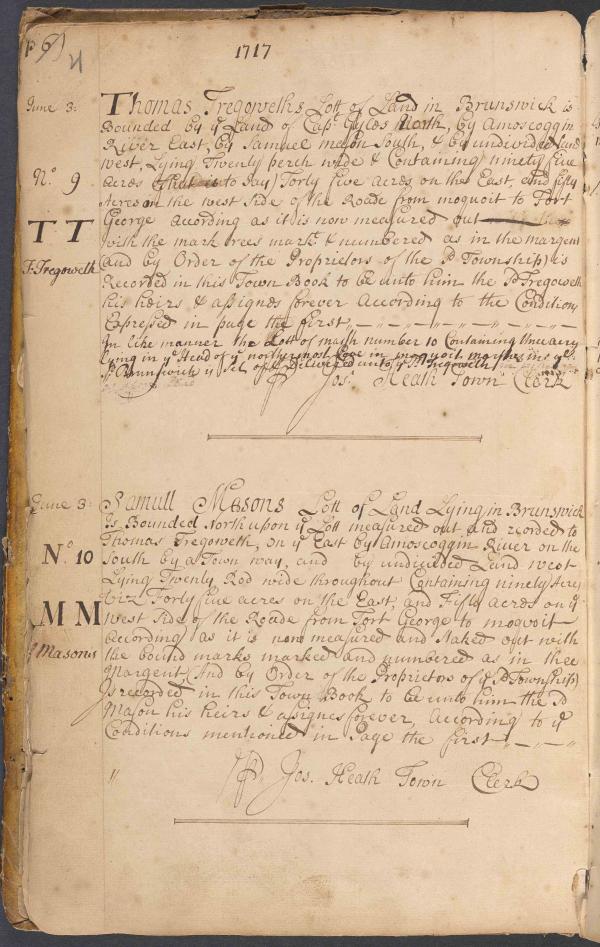 P 6)
1717
June 3:
Thomas Tregoweths Lott of Land in Brunswick is
Bounded by yᵉ Land of Capᵗ Gyles North, by Amoscoggin
River East, by Samuel mason South, & by undivided Land
West, Lying Twenty perch wide & Containing ninety five
Nᵒ 9
Acres (that is to Say) Forty five acres on the East, and fifty
Acres on the west Side of the Roade from moquoit to Fort
T T
George according as it is now measured out
with the mark trees markᵗ & numbered as in the margent
T. Tregoweth
(and by Order of the Proprietors of the sᵈ Township) is
Recorded in this Town Book to be unto him the sᵈ Tregoweth
his heirs & assignes forever According to the Conditions
Expressed in page the first
In like manner the Lott of marsh number 10 Containing three acres
lying in yᵉ Head of yᵉ northermost Cove in moquoit marshes in yᵉ
sᵈ Brunswick is Set off & Delivered unto yᵉ sᵈ Tregoweth
Jos. Heath Town Clerk
June 3:
Samull Masons Lott of Land Lying in Brunswick
Is Bounded North upon yᵉ Lott measured out and recorded to
Thomas Tregoweth, on yᵉ East by Amoscoggin River on the
Nᵒ. 10
South by a Town way, and by undivided Land West
Lying Twenty Rod wide throughout Containing ninety Acres
Viz Forty five acres on the East, and Fifty acres on yᵉ
M M
West Side of the Roade from Fort George to moquoit
According as it is now measured and Staked out with
S Masons
the bound marks marked and numbered as in thee
Margent, (And by Order of the Proprietors of yᵉ sᵈ Township)
Is recorded in this Town Book to be unto him the sᵈ
Mason his heirs & assignes forever, According to yᵉ
Conditions mentioned in Page the first
Jos. Heath Town Clerk